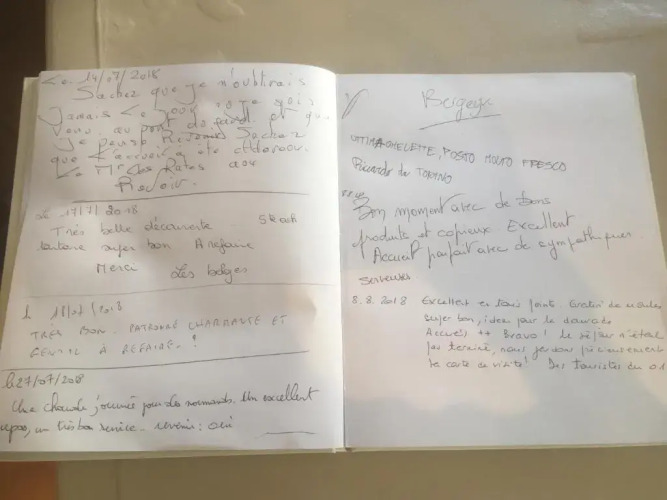 Le 14/07/2018
Sachez que je n'oublirais
Jamais le jour où je suis
venu au pont du et que
je pense Revenir Sachez
que l'accueil a été Adorable
Le Mr des Pates aux
Revoir.
Le 17/7/2018
Très belle découverte Steak
tartare super bon A refaire
Merci Les belges
L 18/07/2018
TRÈS BON. PATRONNE CHARMANTE ET
GENTIL À REFAIRE. !
le 27/07/2018
Une chaude journée pour des normands. Un excellent
repas, un très bon service. revenir : oui
OTTIMA OMELETTE, POSTO MOLTO FRESCO
Riccardo da TORINO
Bon moment avec de bons
produits et copieux Excellent
Accueil parfait avec de sympathiques
Serveuses.
8.8.2018 Excellent en tous points. Gratin de moules
super bon, idem pour la daurade
Accueil ++ Bravo ! Le séjour n'était
pas terminé, nous gardons précieusement
la carte de visite ! Des touristes du 01